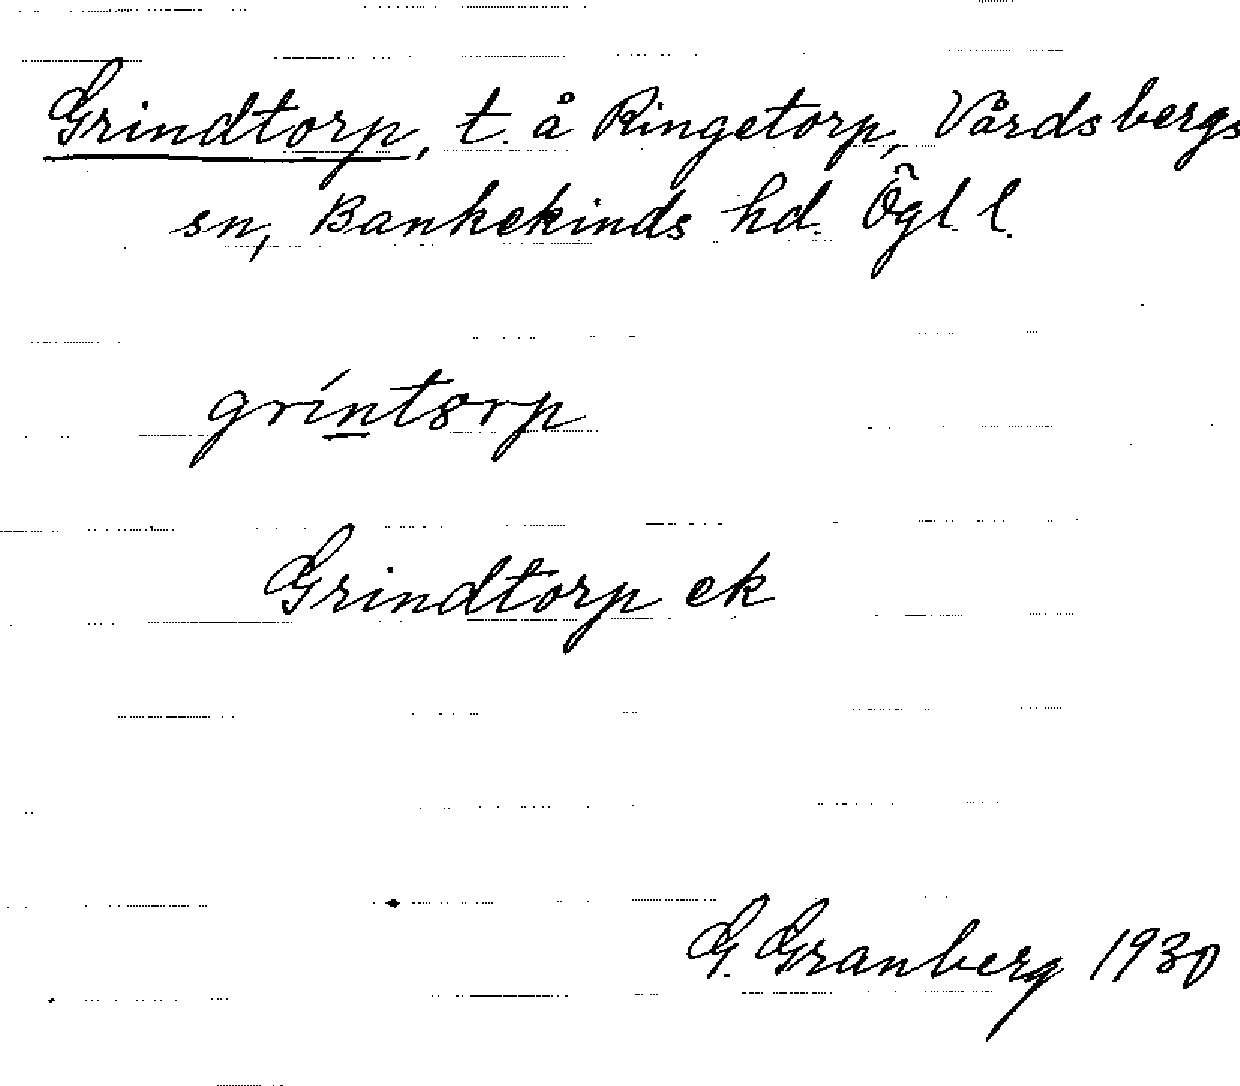 Grindtorp, t. å Ringetorp, Vårdsbergs
sn, Bankekinds hd. Ögl. l.
gríntorp
Grindtorp ek
G. Granberg 1930